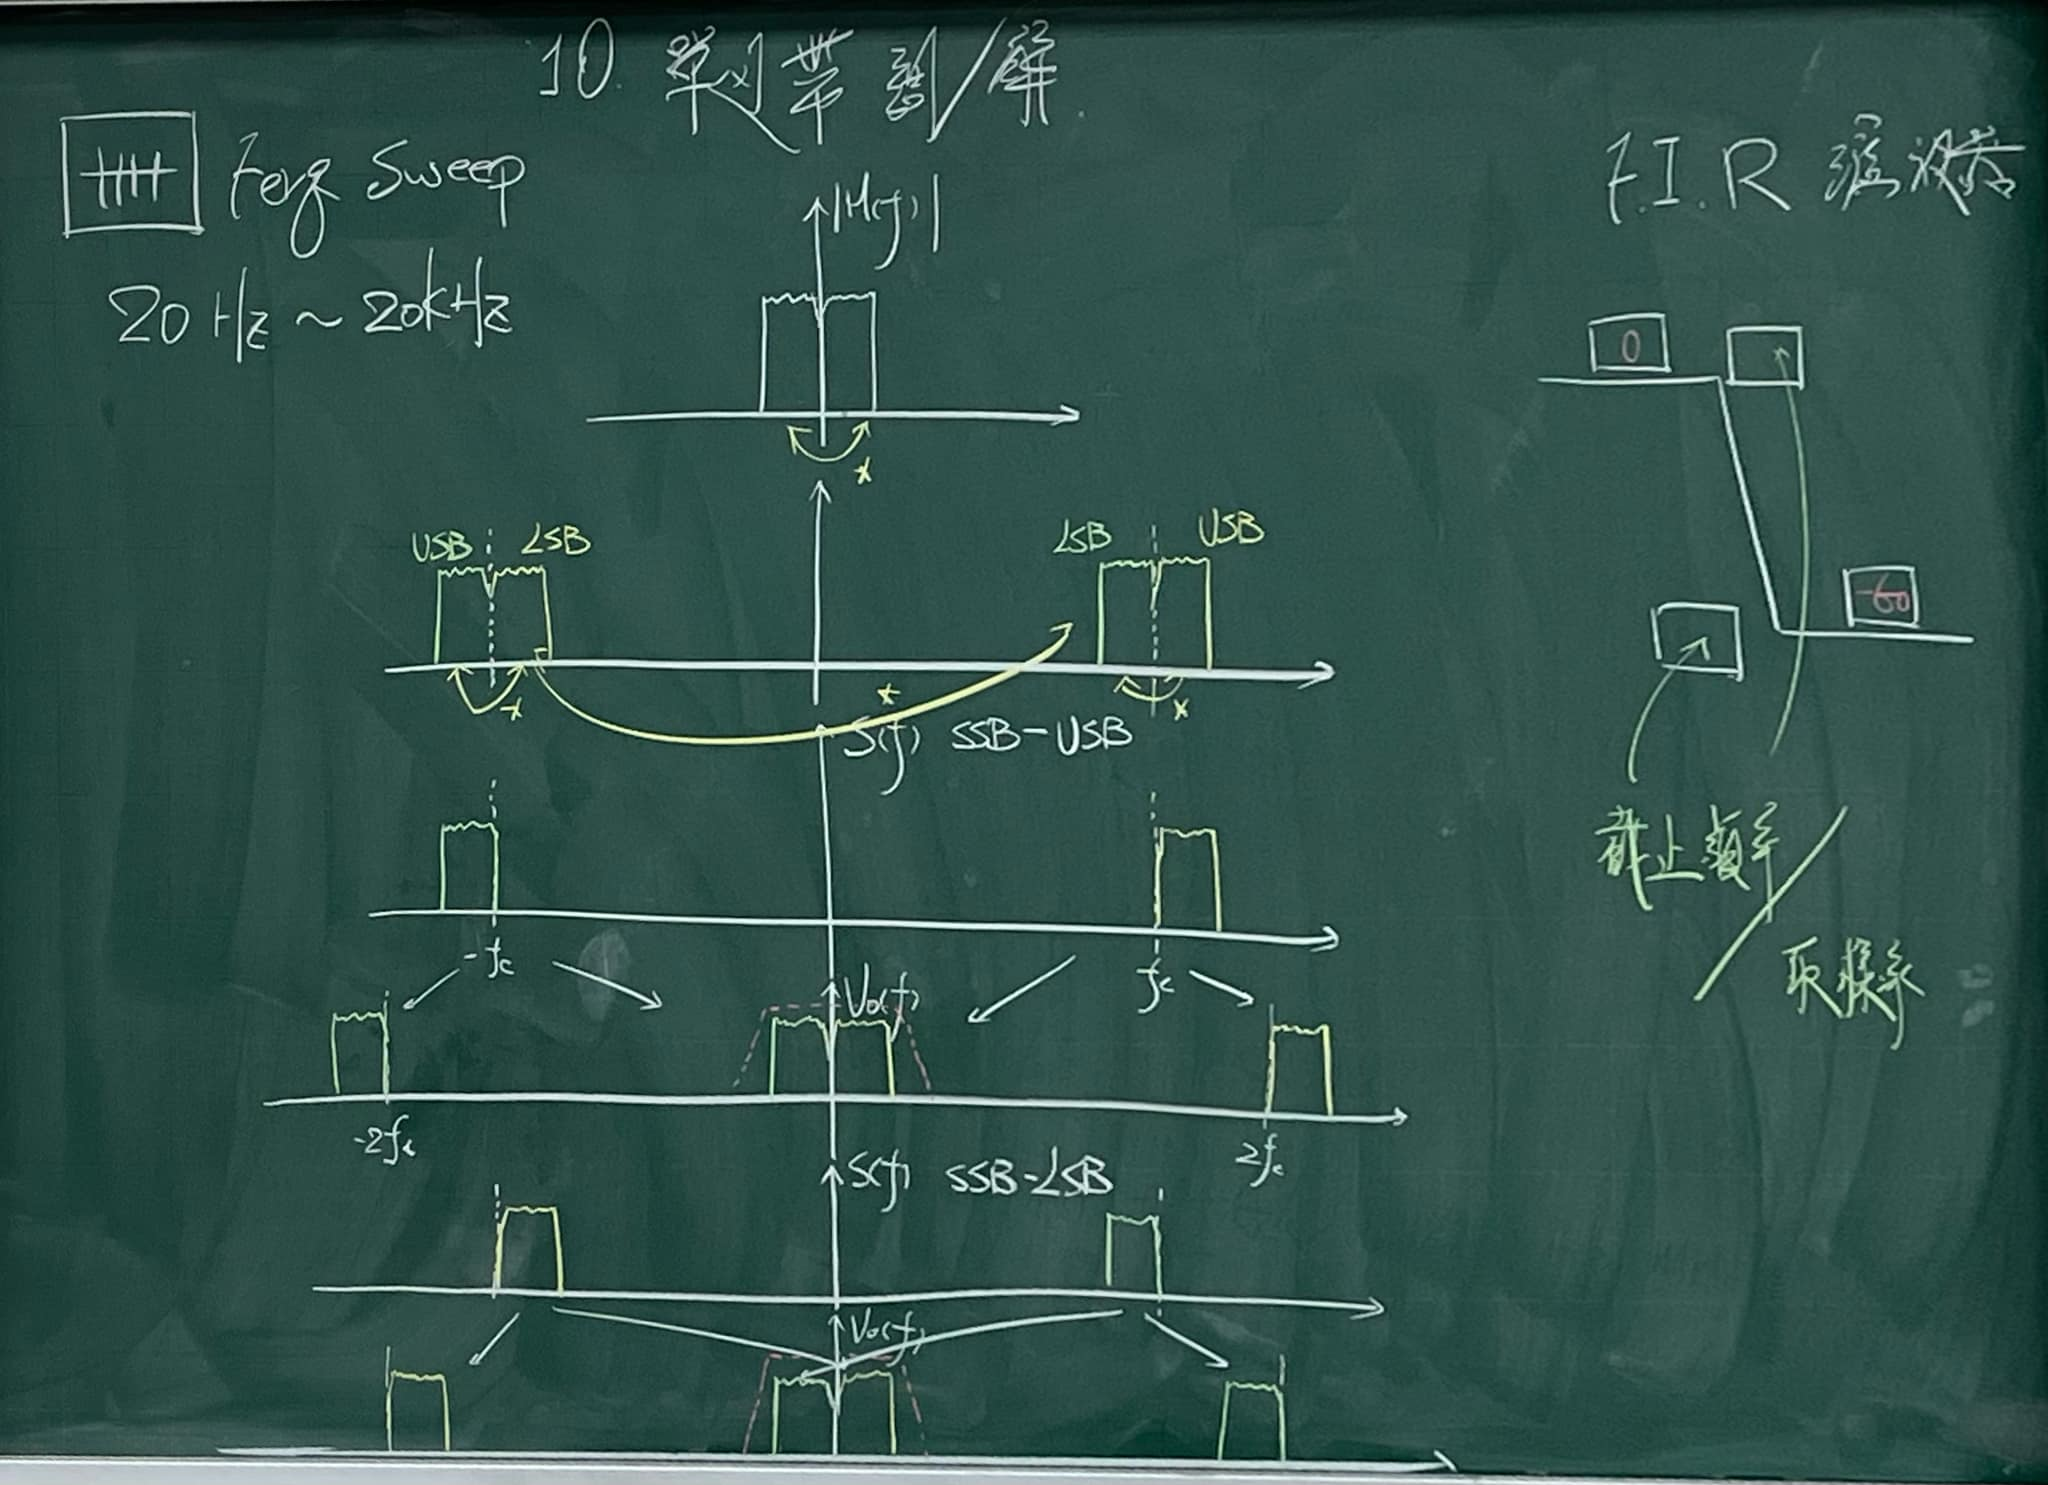 10. 單邊帶調/解
Ferq Sweep
20 Hz ~ 20kHz
|M(f)|
*
USB LSB
LSB USB
*
*
*
S(f) SSB-USB
-fc
fc
Vo(f)
-2fc
2fc
S(f) SSB-LSB
Vo(f)
F.I.R 濾波器
0
-60
截止頻率/
取樣率